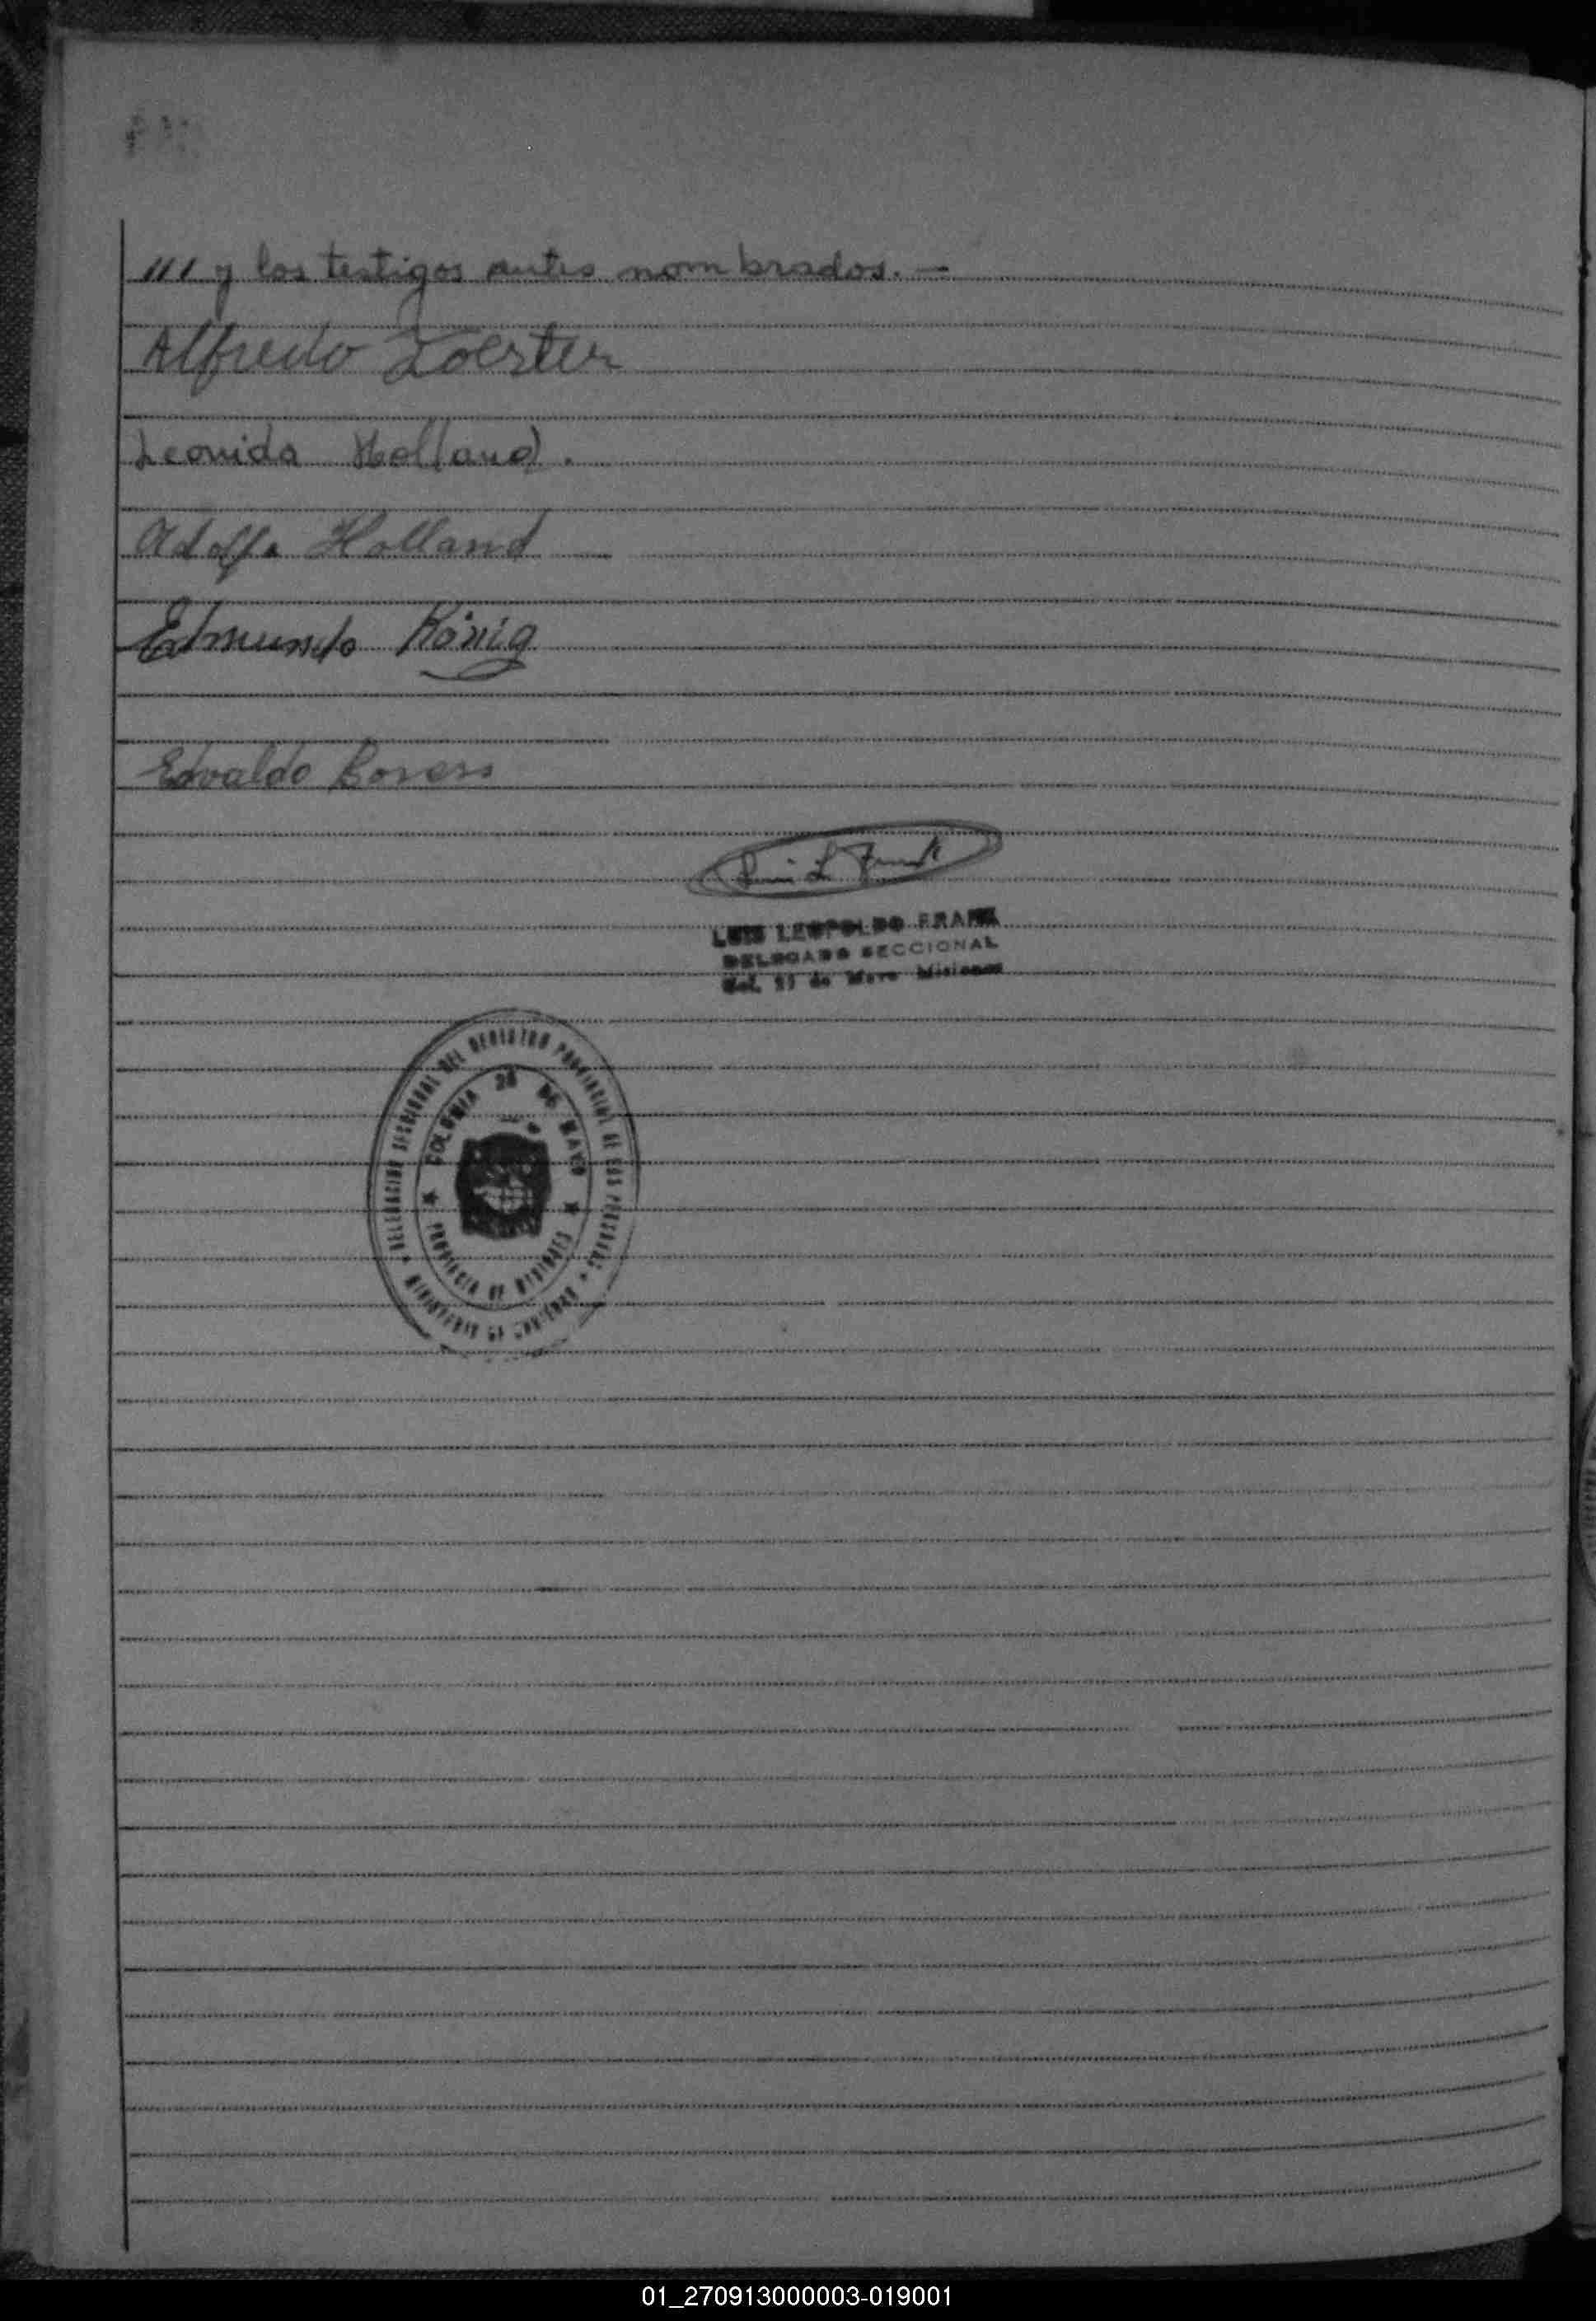 /// y los testigos antes nombrados. —
Alfredo Foerster
Leonida Holland.
Adolfo Holland
Edmundo König
Edvaldo
Luis L Frank
LUIS LEOPOLDO FRANK
DELEGADO SECCIONAL
Col. de Mayo Misiones
DELEGACION SECCIONAL DEL REGISTRO PROVINCIAL DE LAS PERSONAS
COLONIA 25 DE MAYO
PROVINCIA DE MISIONES
MINISTERIO DE GOBIERNO
01_270913000003-019001